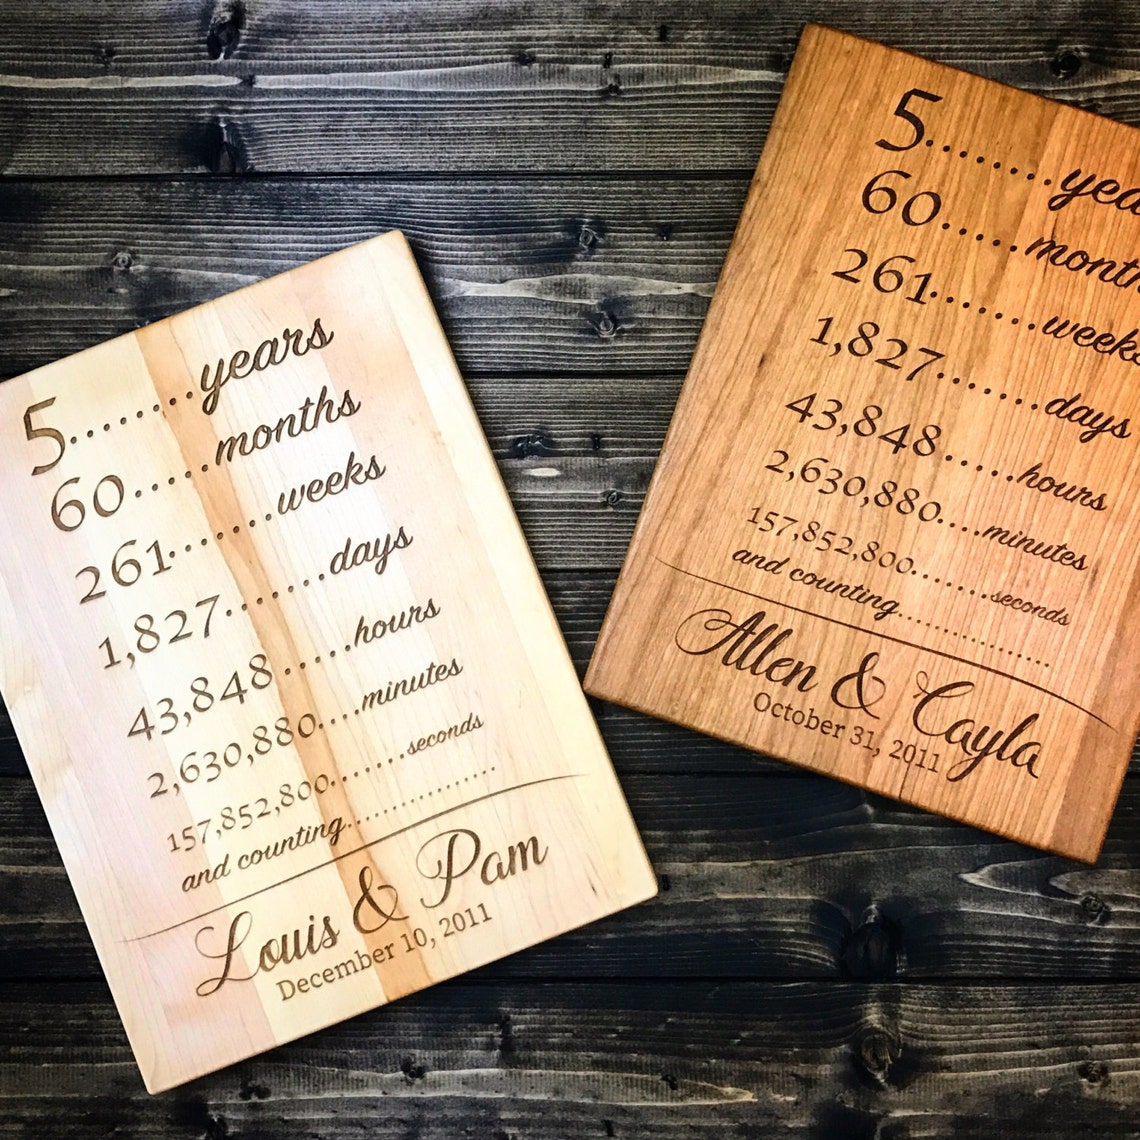 5.......years
60.....months
261.......weeks
1,827.......days
43,848.....hours
2,630,880....minutes
157,852,800.......seconds
and counting................
Louis & Pam
December 10, 2011
5.......yea
60.....month
261.......weeks
1,827.......days
43,848.....hours
2,630,880....minutes
157,852,800.......seconds
and counting................
Allen & Cayla
October 31, 2011